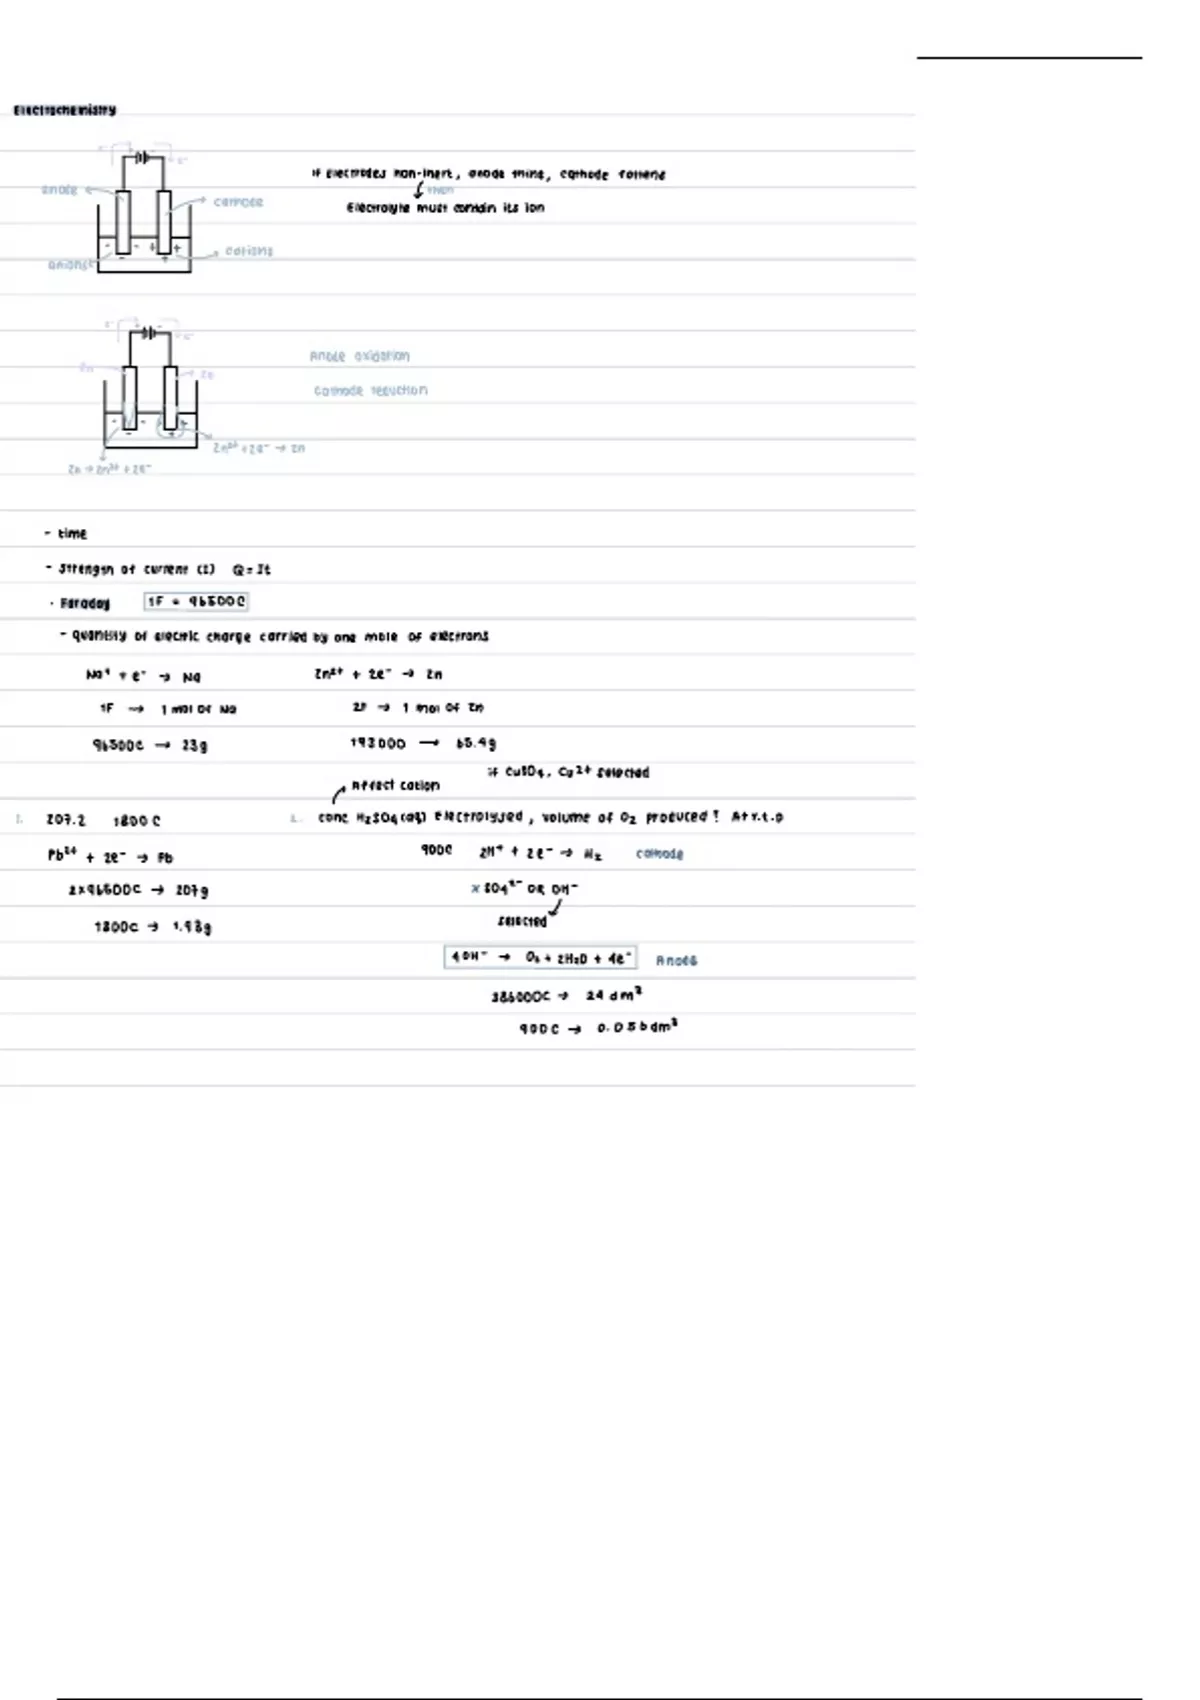 Electrochemistry
e⁻ + - e⁻
anode
cathode
anions
cations
If Electrodes non-inert, anode thins, cathode
then
Electrolyte must contain its ion
e⁻ + - e⁻
Zn
Zn
Zn²⁺ + 2e⁻ → Zn
Zn → Zn²⁺ + 2e⁻
Anode oxidation
cathode reduction
- time
- strength of current (I) Q = It
· Faraday 1F = 96500C
- quantity of electric charge carried by one mole of electrons
Na⁺ + e⁻ → Na
Zn²⁺ + 2e⁻ → Zn
1F → 1 mol of Na
2F → 1 mol of Zn
96500C → 23g
193000 → 65.4g
if CuSO₄, Cu²⁺ selected
Affect cation
1. 207.2 1800C
2. conc H₂SO₄(aq) Electrolysed, volume of O₂ produced? At r.t.p
Pb²⁺ + 2e⁻ → Pb
900C 2H⁺ + 2e⁻ → H₂ cathode
2×96500C → 207g
x SO₄²⁻ OR OH⁻
selected
1800C → 1.93g
4OH⁻ → O₂ + 2H₂O + 4e⁻ Anode
386000C → 24 dm³
900C → 0.056dm³